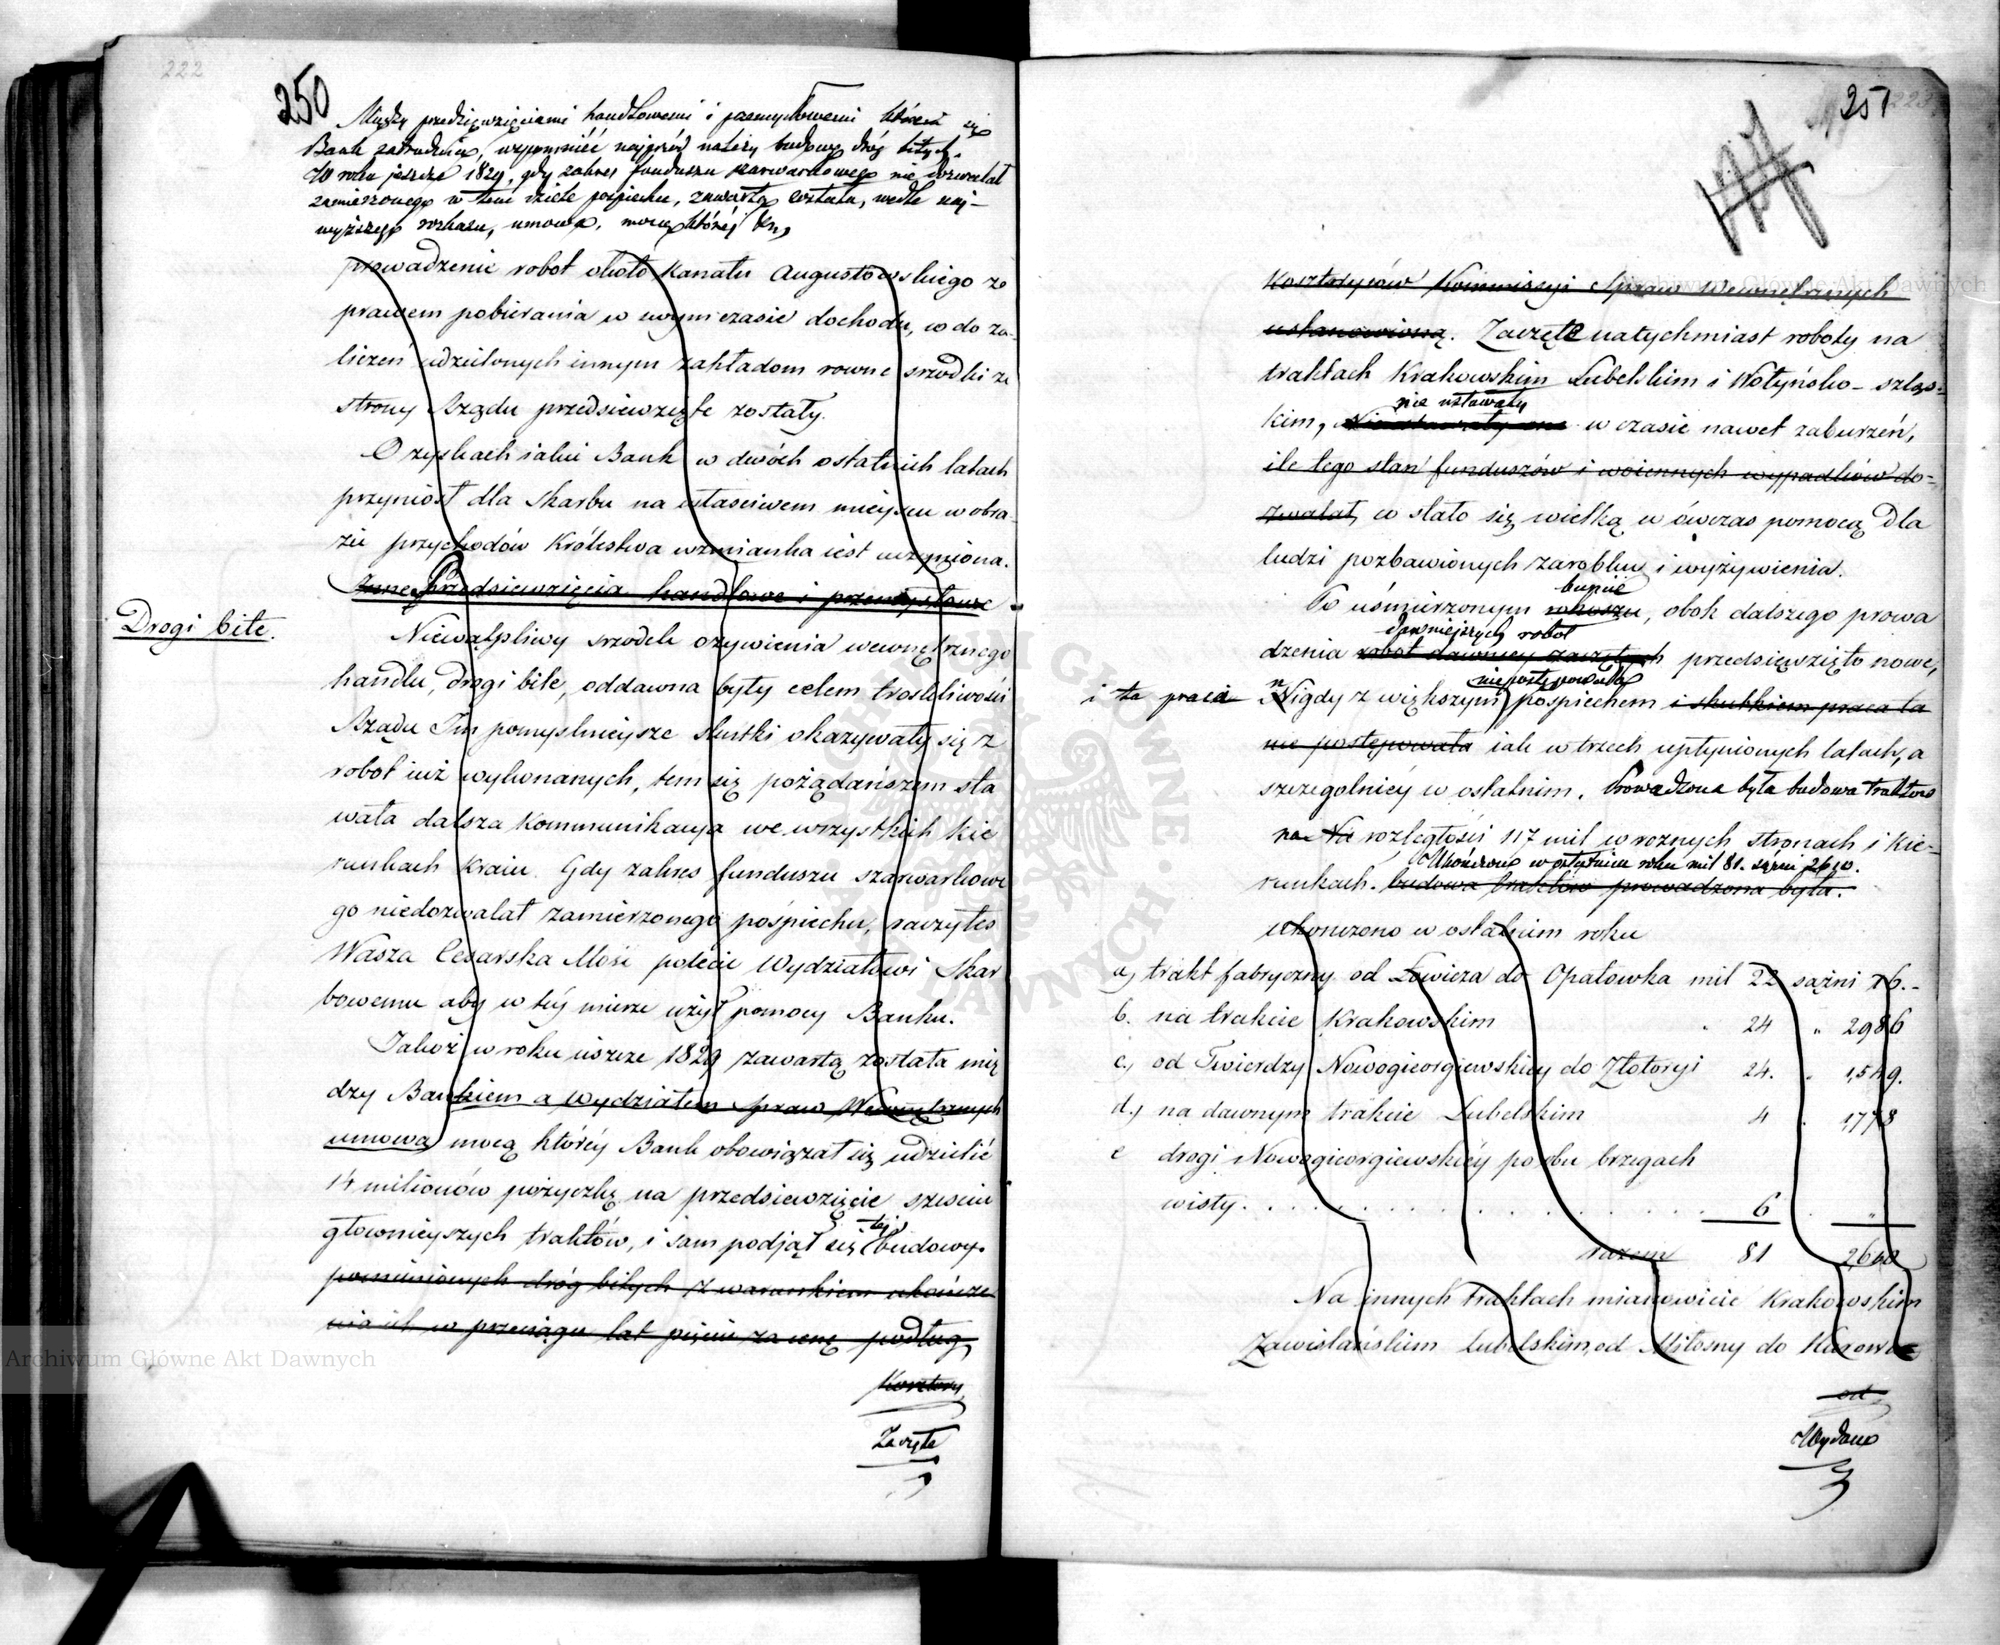 222
250
Między przedsięwzięciami handlowemi i przemysłowemi któremi się
Bank zatrudnia, wspomnieć najprzód należy budowę dróg bitych.
W roku jeszcze 1829, gdy zakres funduszu szarwarkowego nie dozwalał
zamierzonego w tem dziele pośpiechu, zawartą została, wedle naj-
wyższego rozkazu, umowa, mocą której ten,
prowadzenie robot około Kanału Augustowskiego ze
prawem pobierania w swym czasie dochodu, w do za-
liczeń udzielonych innym zakładom rowne srzodki ze
strony Rządu przedsiewzięte zostały.
O zyskach iakie Bank w dwóch ostatnich latach
przyniosł dla Skarbu na właściwem mieyscu w obra-
zie przychodów Królestwa wzmianka iest uczyniona.
Inne Przedsiewzięcia handlowe i przemysłowe
Drogi bite.
Niewątpliwy srzodek ożywienia wewnętrznego
handlu, drogi bite, oddawna były celem troskliwości
Rządu Im pomyslnieysze skutki okazywały się z
robot iuż wykonanych, tem się pożądańszem sta
wała dalsza Kommunikacya we wszystkich kie
runkach Kraiu. Gdy zakres funduszu szarwarkowe
go niedozwalał zamierzonego pośpiechu, raczyłeś
Wasza Cesarska Mość polecić Wydziałowi Skar
bowemu aby w téy mierze użył pomocy Banku.
Jakoż w roku ieszcze 1829 zawartą została mię
dzy Bankiem a Wydziałem Spraw Wewnętrznych
umowa mocą któréy Bank obowiązał się udzielić
14 milionów pożyczkę na przedsiewzięcie sześciu
głownieyszych traktów, i sam podjął się budowy.
tej
pomienionych dróg bitych z warunkiem ukończe
nia ich w przeciągu lat pięciu za cenę podług
Kosztory
Zaczęte
251
223
Kosztorysów Kommissyi Spraw Wewnętrznych
ustanowioną. Zaczęte natychmiast roboty na
traktach Krakowskim Lubelskim i Wołyńsko-szląs-
nie ustawały
kim, Nieustawały one w czasie nawet zaburzeń,
ile tego stan funduszów i woiennych wypadków do-
zwalał, co stało się wielką w ówczas pomocą dla
ludzi pozbawionych zarobku i wyżywienia.
buncie
Po uśmierzonym rokoszu, obok dalszego prowa
dawniejszych robot
dzenia robot dawniey zaczętych przedsięwzięto nowe,
niepostępowała
i ta praca Nigdy z większym pośpiechem i skutkiem praca ta
nie postępowała iak w trzech upłynionych latach, a
szczegolniéy w ostatnim. Prowadzona była budowa traktow
na Na rozległości 117 mil w rożnych stronach i kie-
Ukończono w ostatnim roku mil 81. sążni 2640.
runkach. budowa traktow prowadzona była.
ukonczono w ostatnim roku
a, trakt fabryczny od Łowicza do Opatowka mil 22 sążni 76.-
b. na trakcie Krakowskim " 24 " 2986
c, od Twierdzy Nowogieorgiewskiey do Złotoryi 24. " 1,549.
d, na dawnym trakcie Lubelskim 4 . 1,778
e drogi Nowogieorgiewskiéy po obu brzegach
wisły. . . . . . . . . 6 . "
razem 81 2,640
Na innych traktach mianowicie Krakowskim
Zawiślańskim Lubelskim, od Miłosny do Kurowa
od
Wydane
Archiwum Główne Akt Dawnych
Archiwum Główne Akt Dawnych
ARCHIWUM GŁÓWNE AKT DAWNYCH